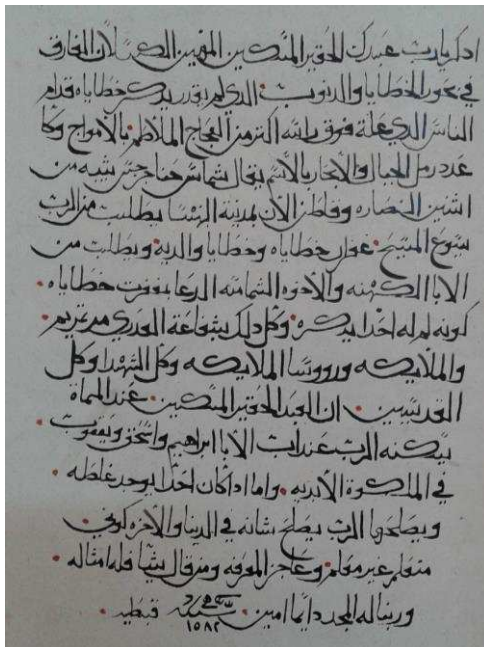 اذكر يارب عبدك الحقير المسكين المهين الكسلان الغارق
في بحور الخطايا والذنوب الذي لم يقدر يذكر خطاياه قدام
الناس الذي عملة فوق راسه اكتر من العجاج الملاطم بالامواج وكا
عدد رمل الجبال والابحار بالاسم يقال شماس جرجس شبه من
اشنين النصاره وقاطن الان بمدينة البهنسا يطلب من الرب
يسوع المسيح غفران خطاياه وخطايا والديه ويطلب من
الابا الكهنه والاخوه الشمامسه الدعا بمغفرت خطاياه
كونه لم له احدا يذكره وكل ذلك بشفاعة العدري مرتمريم
والملايكه ورووسا الملايكه وكل الشهدا وكل
القديسين ان العبد الحقير المسكين عند المماة
يسكنه الرب عند ات الابا ابراهيم واسحق ويعقوب
في الملكوة الابديه واما اذا كان احدا يوجد غلطه
ويصلحها الرب يصلح شانه في الدنيا والاخره كوني
متعلم غير معلم وعاجز المعرفه ومن قال شيا فله امثاله
وربنا له المجد دايما امين سنة ١٥٨٢ قبطيه